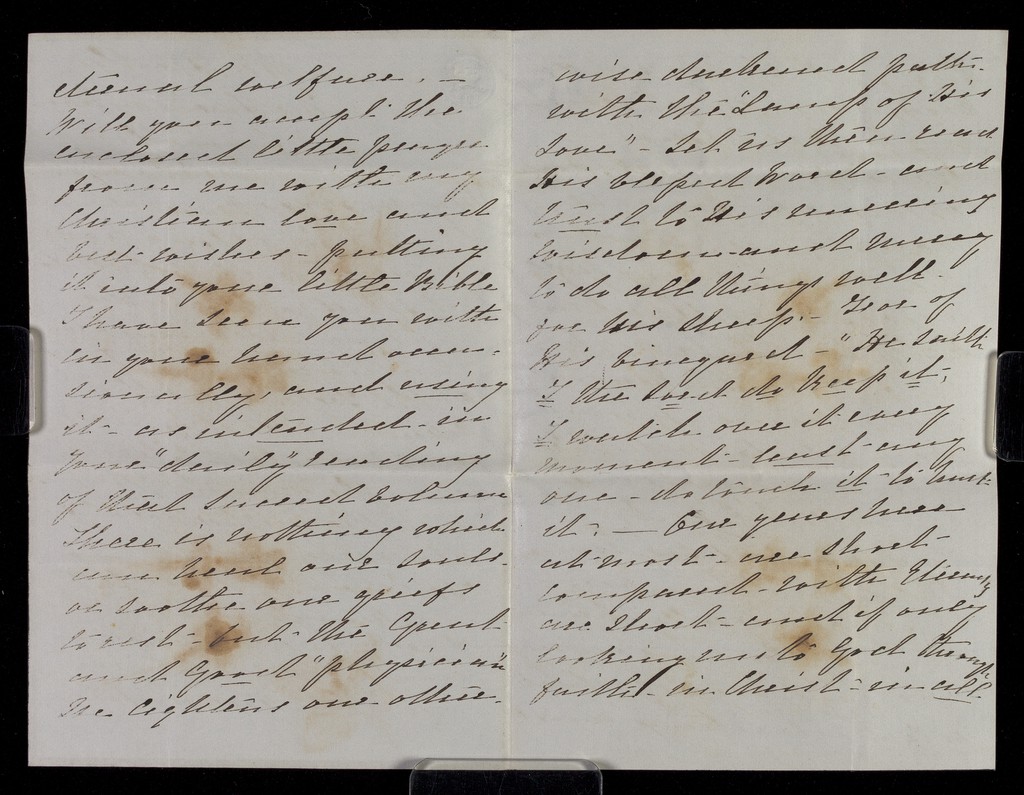 eternal welfare. —
Will you accept the
enclosed little prayer
from me with my
Christian love and
best wishes - putting
it into your little Bible
I have seen you with
in your hand occa-
sionally, and using
it - as intended - in
your "daily" reading
of that sacred volume
There is nothing which
can heal our souls
or soothe our griefs
to rest - but - the Great
and Good "physician"
He lightens our other-
wise darkened path
with the "Lamp of His
Love" - Let us then read
His blessed Word - and
trust to His unerring
wisdom - and mercy
to do all things well -
for his sheep. - For of
His vineyard - "He saith
I the Lord do keep it,
I watch over it every
moment - least any
one - do touch it to hurt
it". — Our years here
at most - are short -
compared with Eternity
are short - and if only
looking unto God through
faith - in Christ - in all